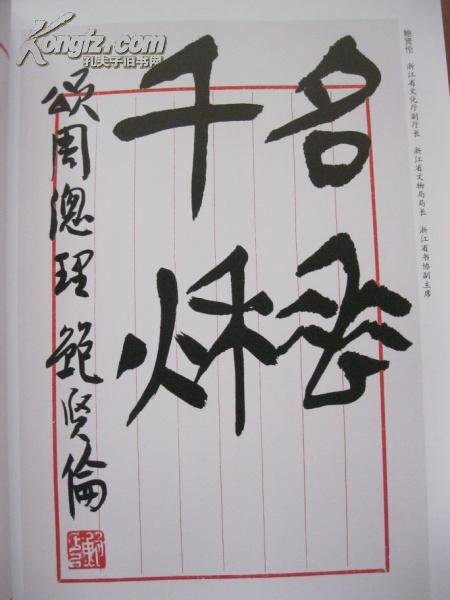 Kongfz.com
孔夫子旧书网
鲍贤伦 浙江省文化厅副厅长 浙江省文物局局长 浙江省书协副主席
名垂
千秌
頌周總理 鮑賢倫